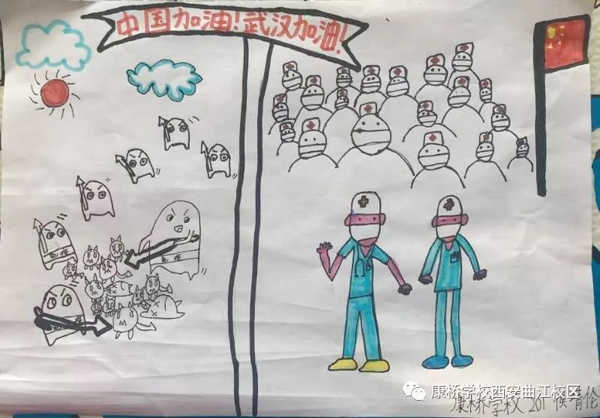 中国加油!武汉加油!
康桥学校西安曲江校区
康桥学校 201 侯育伦